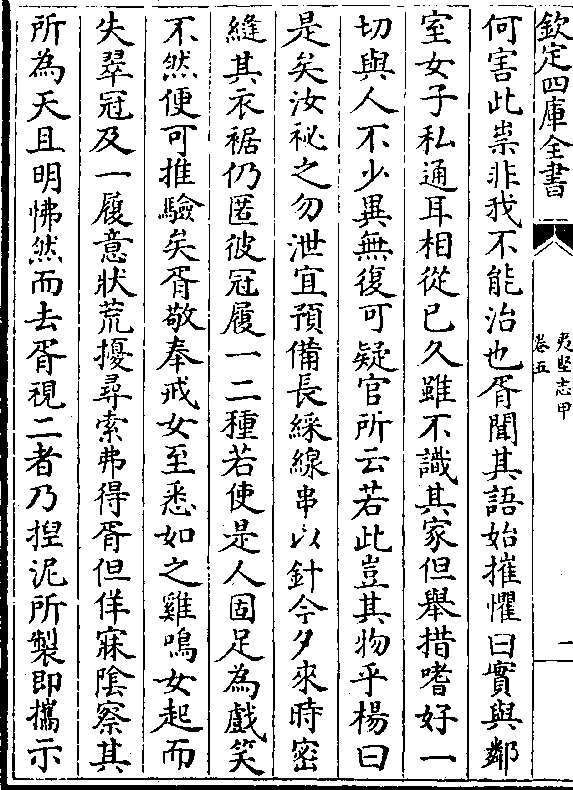 欽定四庫全書
夷堅志甲
卷五
一
何害此祟非我不能治也胥聞其語始摧懼曰實與鄰
室女子私通耳相從已久雖不識其家但舉措嗜好一
切與人不少異無復可疑官所云若此豈其物乎楊曰
是矣汝祕之勿泄宜預備長綵線串以針今夕來時密
縫其衣裾仍匿彼冠履一二種若使是人固足為戲笑
不然便可推驗矣胥敬奉戒女至悉如之雞鳴女起而
失翠冠及一履意狀荒擾尋索弗得胥但佯寐陰察其
所為天且明怫然而去胥視二者乃揑泥所製即攜示